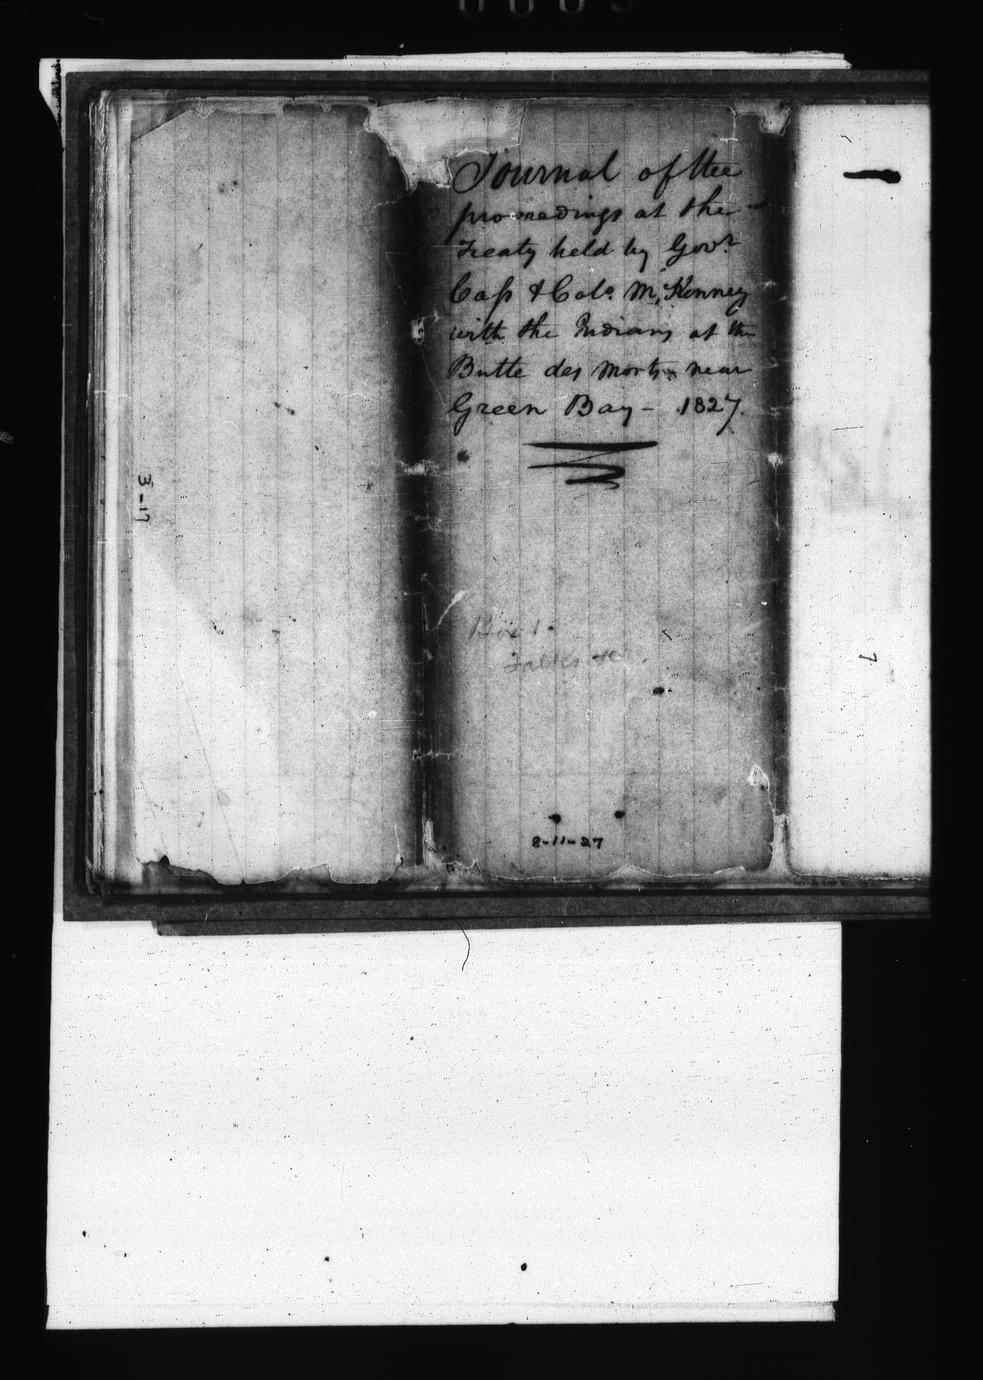 Journal of the
proceedings at the
Treaty held by Govr
Cass & Colo. McKenney
with the Indians at the
Butte des Morts near
Green Bay - 1827.
Box 1.
8-11-27
3-17